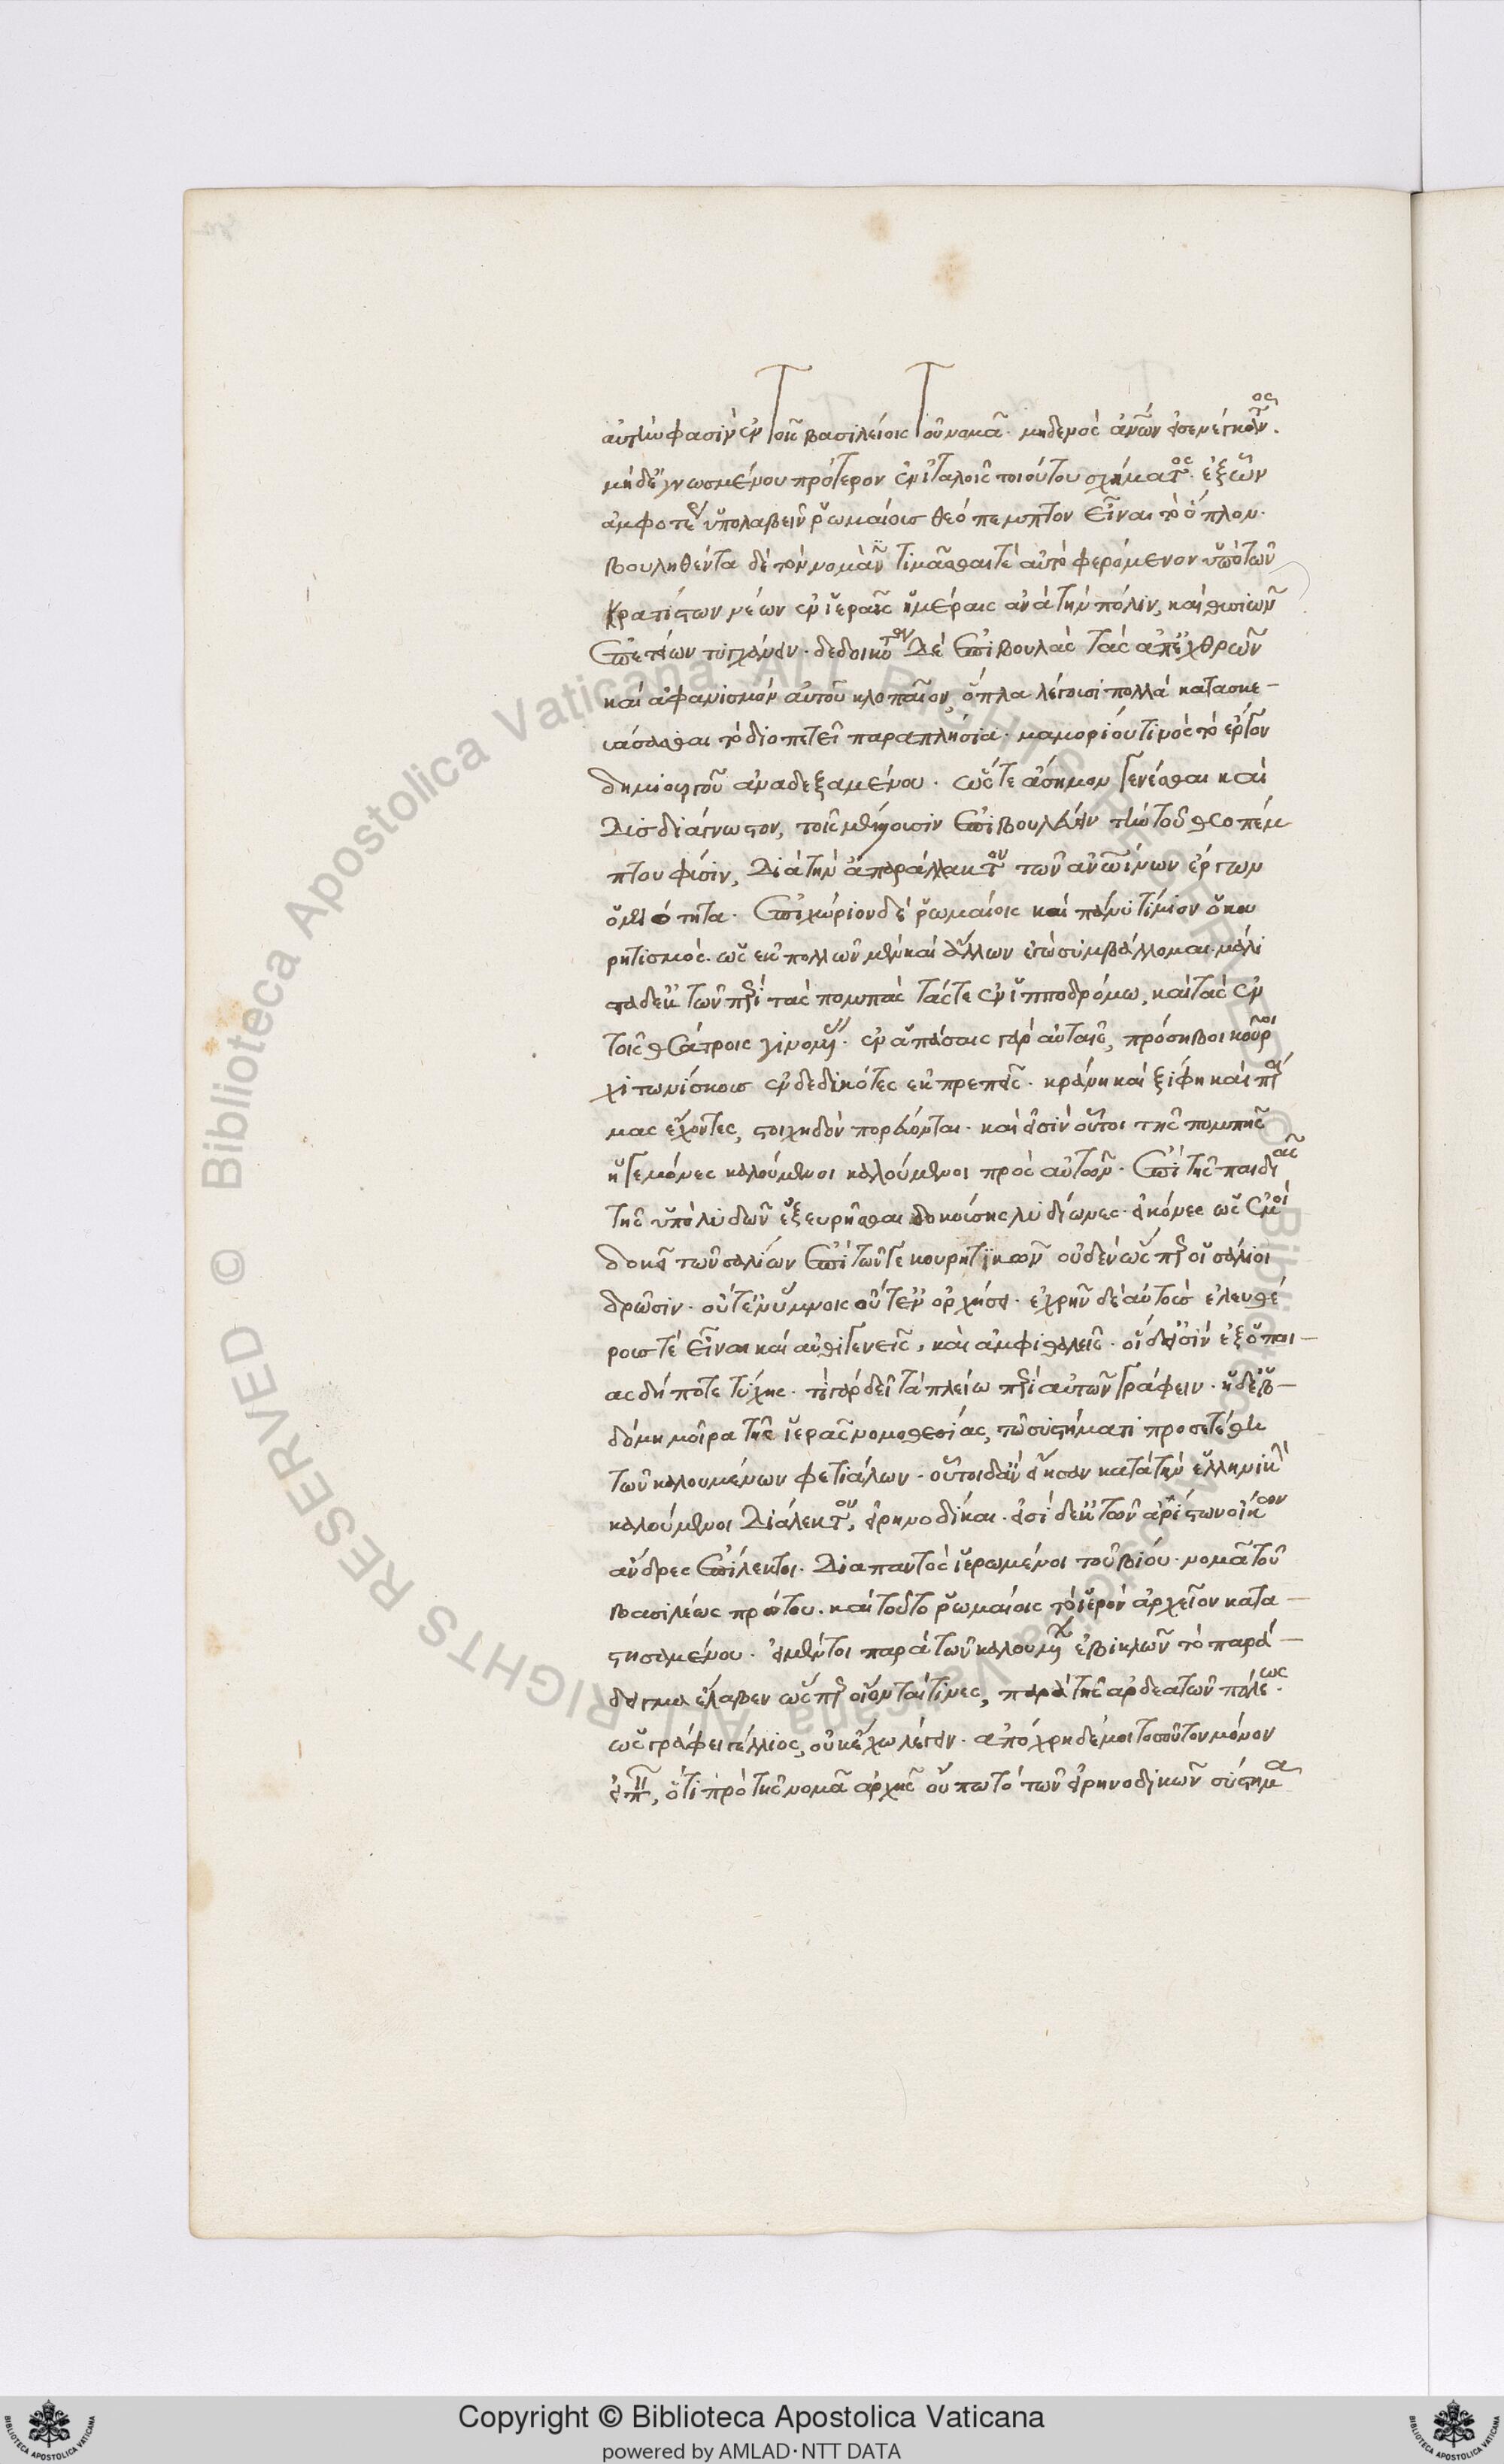 αὐτὴν φασὶν ἐν τοῖς βασιλείοις τοῦ νομᾶ. μηδενὸς ἀνῶν εἰσενέγκαντος.
μηδ' ἐγνωσμένου πρότερον ἐν ἰταλοῖς τοιούτου σχήματος. ἐξ ὧν
ἀμφοτέρων ὑπολαβεῖν ῥωμαίους θεόπεμπτον εἶναι τὸ ὅπλον.
βουληθέντα δὲ τὸν νομᾶν τιμᾶσθαί τε αὐτὸ φερόμενον ὑπὸ τῶν
κρατίστων νέων ἐν ἱεραῖς ἡμέραις ἀνὰ τὴν πόλιν, καὶ θυσιῶν
ἐπετείων τυγχάνειν. δεδοικότα δὲ ἐπιβουλὰς τὰς ἀπ' ἐχθρῶν
καὶ ἀφανισμὸν αὐτοῦ κλοπαῖον, ὅπλα λέγουσι πολλὰ κατασκε-
υάσασθαι τῶ διοπετεῖ παραπλήσια. μαμορίου τινὸς τὸ ἔργον
δημιουργοῦ ἀναδεξαμένου. ὥστε ἄσημον γενέσθαι καὶ
δυσδιάγνωστον, τοῖς μέλλουσιν ἐπιβουλεύειν τὴν τοῦ θεοπέμ
πτου φύσιν, διὰ τὴν ἀπαράλλακτον τῶν ἀνωπίνων ἔργων
ὁμοιότητα. ἐπιχώριον δὲ ῥωμαίοις καὶ πάνυ τίμιον ὁ κου
ρητισμὸς. ὡς ἐκ πολλῶν μὲν καὶ ἄλλων ἐγὼ συμβάλλομαι. μάλι
στα δ' ἐκ τῶν περὶ τὰς πομπὰς τάς τε ἐν ἱπποδρόμω, καὶ τὰς ἐν
τοῖς θεάτροις γινομένων. ἐν ἁπάσαις γὰρ αὐταῖς, πρόσηβοι κοῦροι
χιτωνίσκους ἐνδεδυκότες ἐκπρεπεῖς. κράνη καὶ ξίφη καὶ παρ
μας ἔχοντες, στοιχηδὸν πορεύονται. καὶ εἰσὶν οὗτοι τῆς πομπῆς
ἡγεμόνες καλούμενοι καλούμενοι πρὸς αὐτῶν. ἐπὶ τῆς παιδιᾶς
τῆς ὑπὸ λυδῶν ἐξευρῆσθαι δοκούσης λυδίωνες. εἰκόνες ὡς ἐμοὶ
δοκεῖ τῶν σαλίων ἐπεὶ τῶν γε κουρητικῶν οὐδὲν ὥσπερ οἱ σάλιοι
δρῶσιν. οὔτ' ἐν ὕμνοις οὔτ' ἐν ὀρχήσει. ἐχρῆν δὲ αὐτοὺς ἐλευθέ
ρους τὲ εἶναι καὶ αὐθιγενεῖς, καὶ ἀμφιθαλεῖς. οἱ δ' εἰσὶν ἐξ ὁποί-
ας δήποτε τύχης. τί γὰρ δεῖ τὰ πλείω περὶ αὐτῶν γράφειν. ἡ δ' ἑβ-
δόμη μοῖρα τῆς ἱερᾶς νομοθεσίας, τῶ συστήματι προσετέθη
τῶν καλουμένων φετιάλων. οὗτοι δ' ἂν εἴησαν κατὰ τὴν ἑλληνικὴν
καλούμενοι διάλεκτον, εἰρηνοδίκαι. εἰσὶ δ' ἐκ τῶν ἀρίστων οἴκων
ἄνδρες ἐπίλεκτοι. διὰ παντὸς ἱερωμένοι τοῦ βίου. νομᾶ τοῦ
βασιλέως πρώτου. καὶ τοῦτο ῥωμαίοις τὸ ἱερὸν ἀρχεῖον κατα-
στησαμένου. εἰ μέντοι παρὰ τῶν καλουμένων ἐβικλῶν τὸ παρά-
δειγμα ἔλαβεν ὥσπερ οἴονταί τινες, παρὰ τῆς ἀρδεατῶν πόλεως.
ὡς γράφει γέλλιος, οὐκ ἔχω λέγειν. ἀπόχρη δέ μοι τοσοῦτον μόνον
εἰπεῖν, ὅτι πρὸ τῆς νομᾶ ἀρχῆς οὔπω τὸ τῶν εἰρηνοδικῶν σύστημα